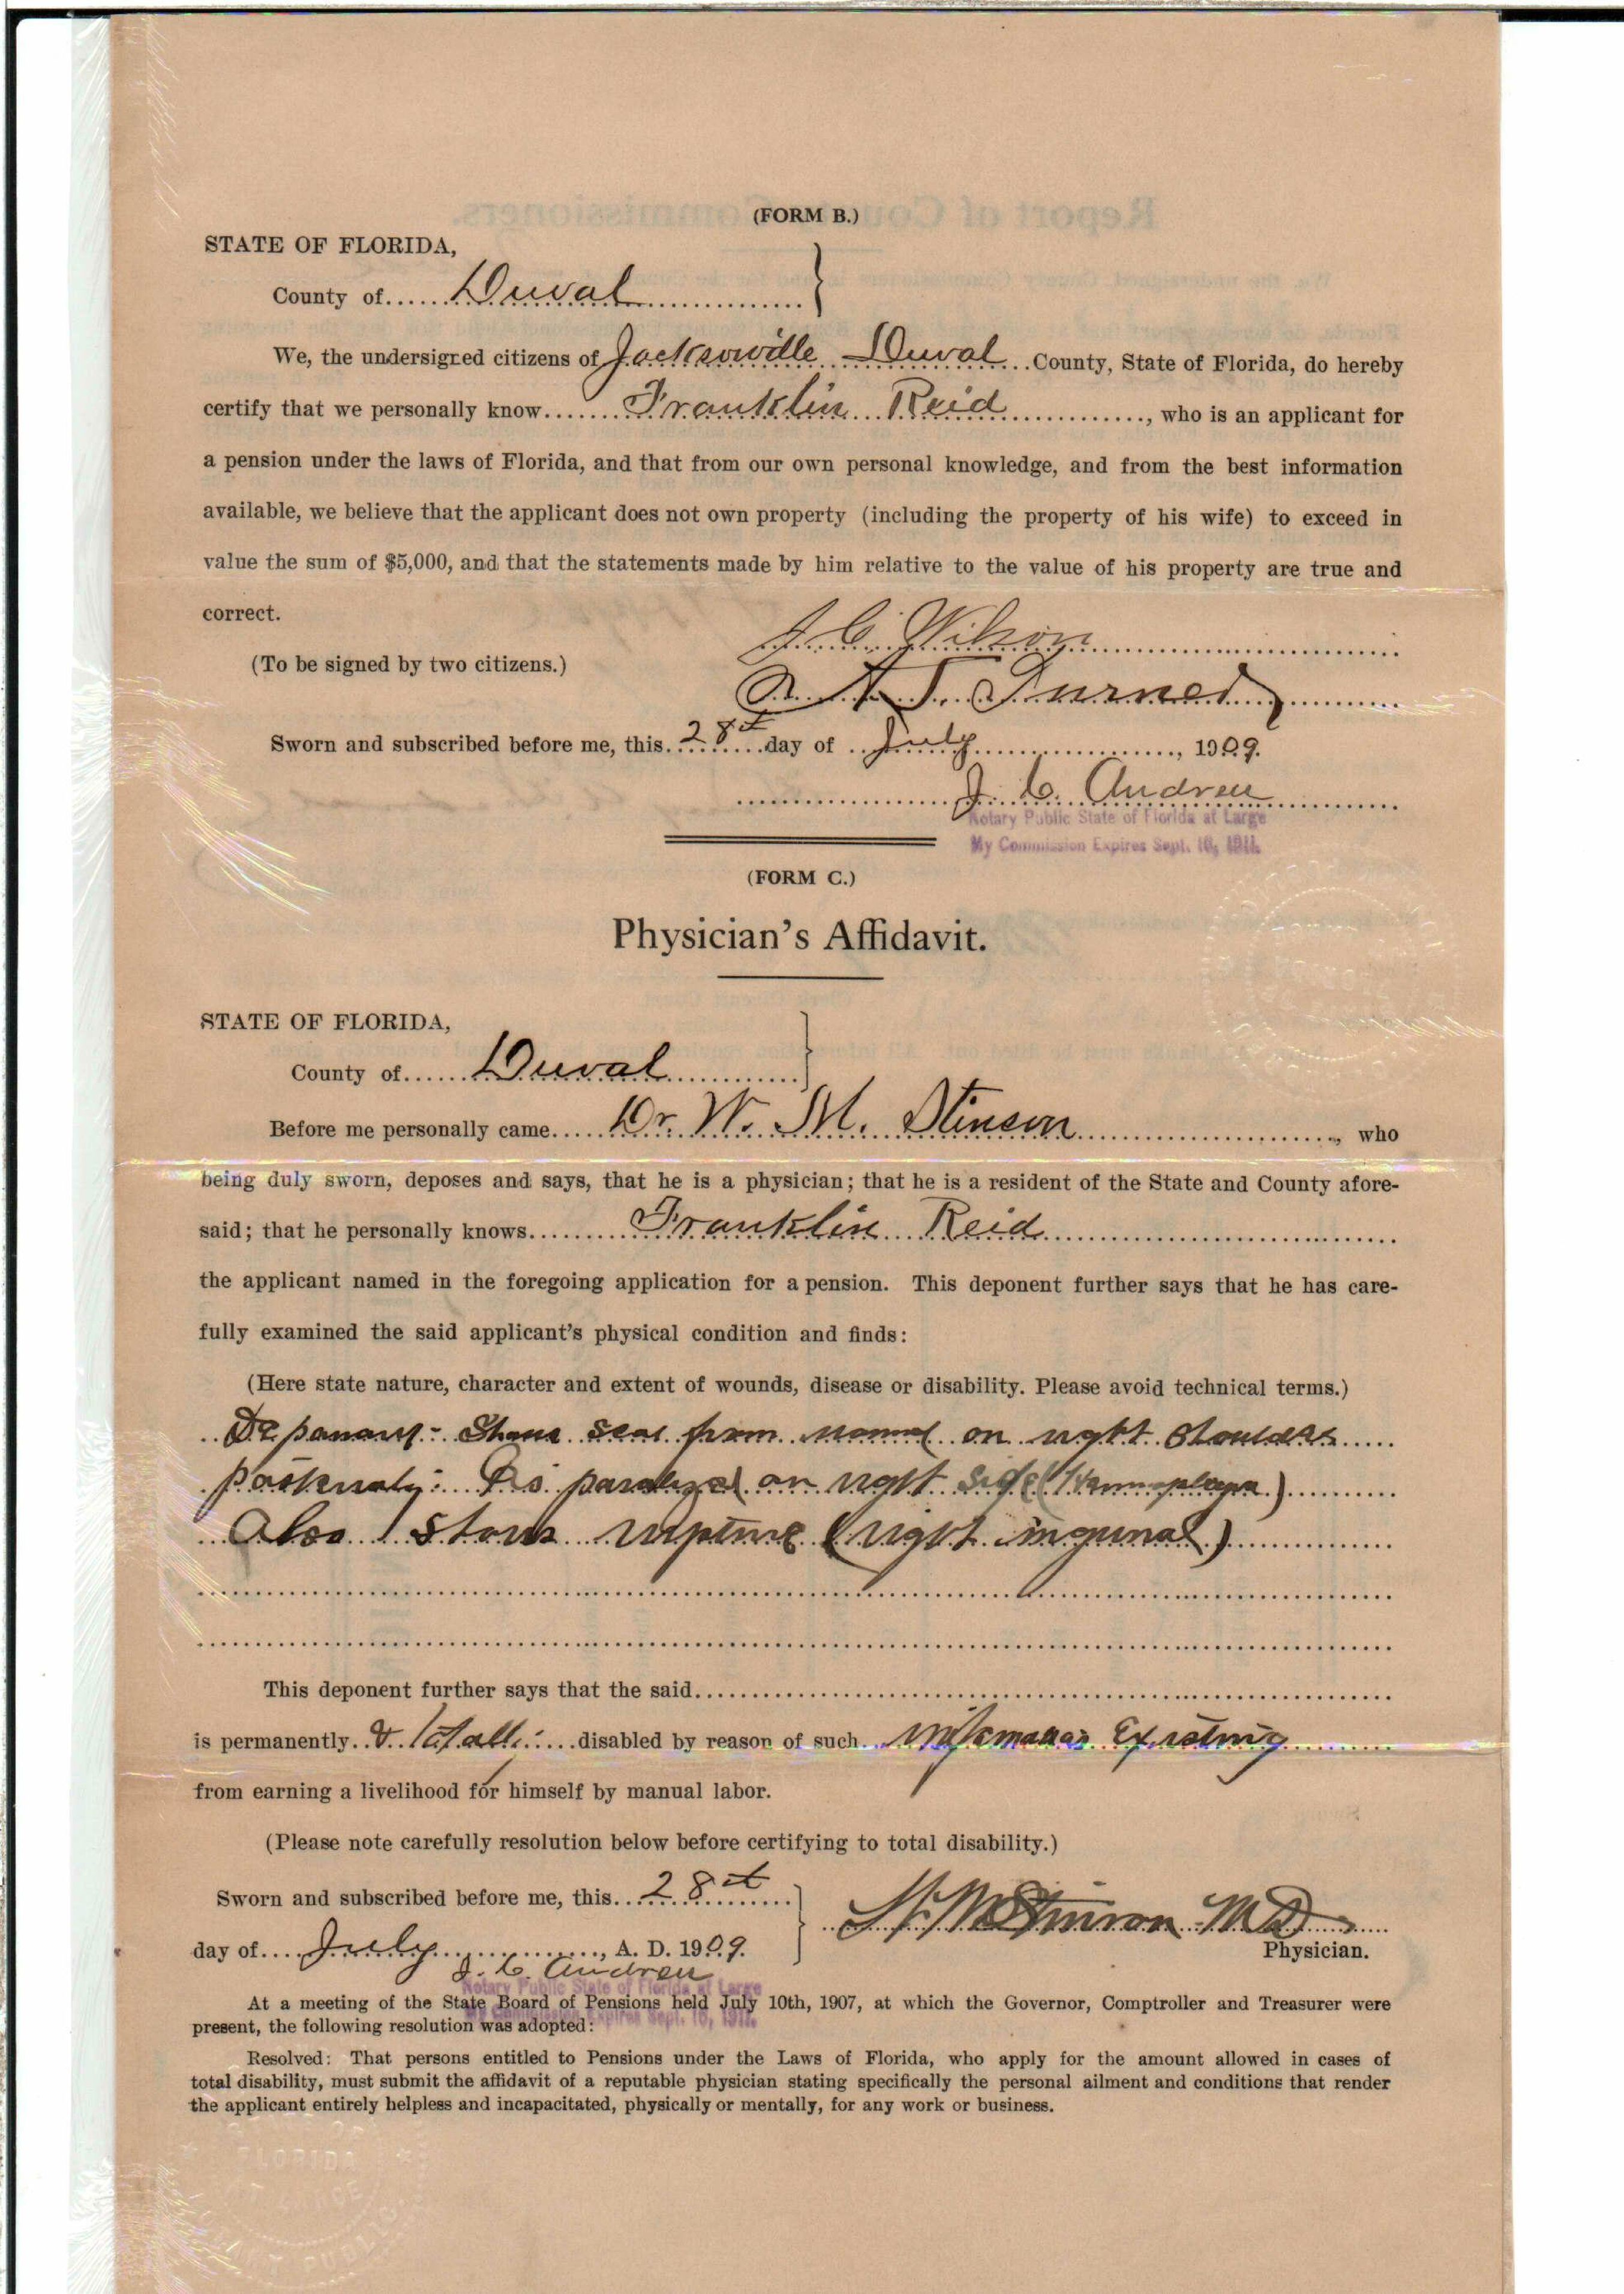 (FORM B.)
STATE OF FLORIDA,
County of Duval
We, the undersigned citizens of Jacksonville Duval County, State of Florida, do hereby
certify that we personally know Franklin Reid, who is an applicant for
a pension under the laws of Florida, and that from our own personal knowledge, and from the best information
available, we believe that the applicant does not own property (including the property of his wife) to exceed in
value the sum of $5,000, and that the statements made by him relative to the value of his property are true and
correct.
J. C. Wilson
(To be signed by two citizens.)
A. T. Turner
Sworn and subscribed before me, this 28th day of July, 1909.
J. C. Andreu
Notary Public State of Florida at Large
My Commission Expires Sept. 16, 1911.
(FORM C.)
Physician's Affidavit.
STATE OF FLORIDA,
County of Duval
Before me personally came Dr. W. M. Stinson, who
being duly sworn, deposes and says, that he is a physician; that he is a resident of the State and County afore-
said; that he personally knows Franklin Reid
the applicant named in the foregoing application for a pension. This deponent further says that he has care-
fully examined the said applicant's physical condition and finds:
(Here state nature, character and extent of wounds, disease or disability. Please avoid technical terms.)
scar from wound on right shoulder
Is paralyzed on right side (Hemiplegia)
Also rupture (right inguinal)
This deponent further says that the said
is permanently & totally disabled by reason of such infirmities Existing
from earning a livelihood for himself by manual labor.
(Please note carefully resolution below before certifying to total disability.)
Sworn and subscribed before me, this 28th
day of July, A. D. 1909.
W. M. Stinson M D
Physician.
J. C. Andreu
Notary Public State of Florida at Large
My Commission Expires Sept. 16, 1911.
At a meeting of the State Board of Pensions held July 10th, 1907, at which the Governor, Comptroller and Treasurer were
present, the following resolution was adopted:
Resolved: That persons entitled to Pensions under the Laws of Florida, who apply for the amount allowed in cases of
total disability, must submit the affidavit of a reputable physician stating specifically the personal ailment and conditions that render
the applicant entirely helpless and incapacitated, physically or mentally, for any work or business.